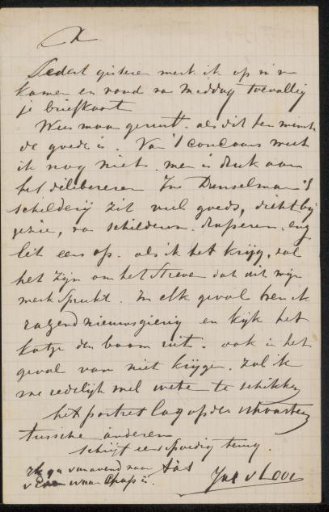 A
Sedert gisteren werk ik op m'n
kamer en vond van middag toevallig
je briefkaart
Wees maar gerust. als dit ten minste
de goede is. Van 't concours weet
ik nog niets. men is druk aan
het delibereren In Dunselman's
schilderij zit veel goeds, dicht bij
gezien, van schilderen. draperen, enz
let eens op. als ik het krijg, zal
het zijn om het streven dat uit mijn
werk spreekt. In elk geval ben ik
razend nieuwsgierig en kijk het
katje den boom uit. ook in het
geval van niet krijgen. zal ik
me redelijk wel weten te schikken
het portret lag op den schoorsteen
tusschen anderen
schrijf eens spoedig terug.
ik ga vanavond naar
Jac v Looy